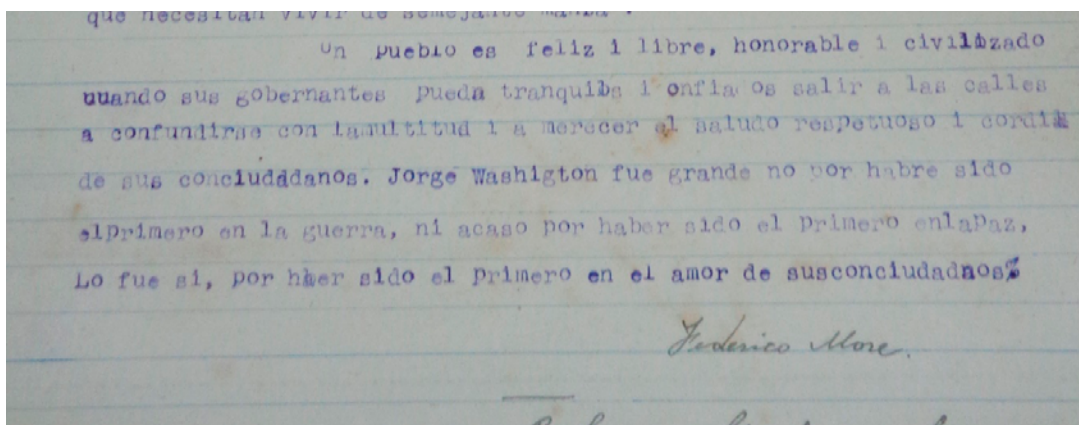 que necesitan vivir de semejante
un pueblo es feliz i libre, honorable i civilizado
uuando sus gobernantes pueda tranquilos i onfia os salir a las calles
a confundirse con lamultitud i a merecer el saludo respetuoso i cordial
de sus conciudddanos. Jorge Washigton fue grande no por habre sido
elprimero en la guerra, ni acaso por haber sido el primero enlapaz,
Lo fue si, por haer sido el primero en el amor de susconciudadnos
Federico More.